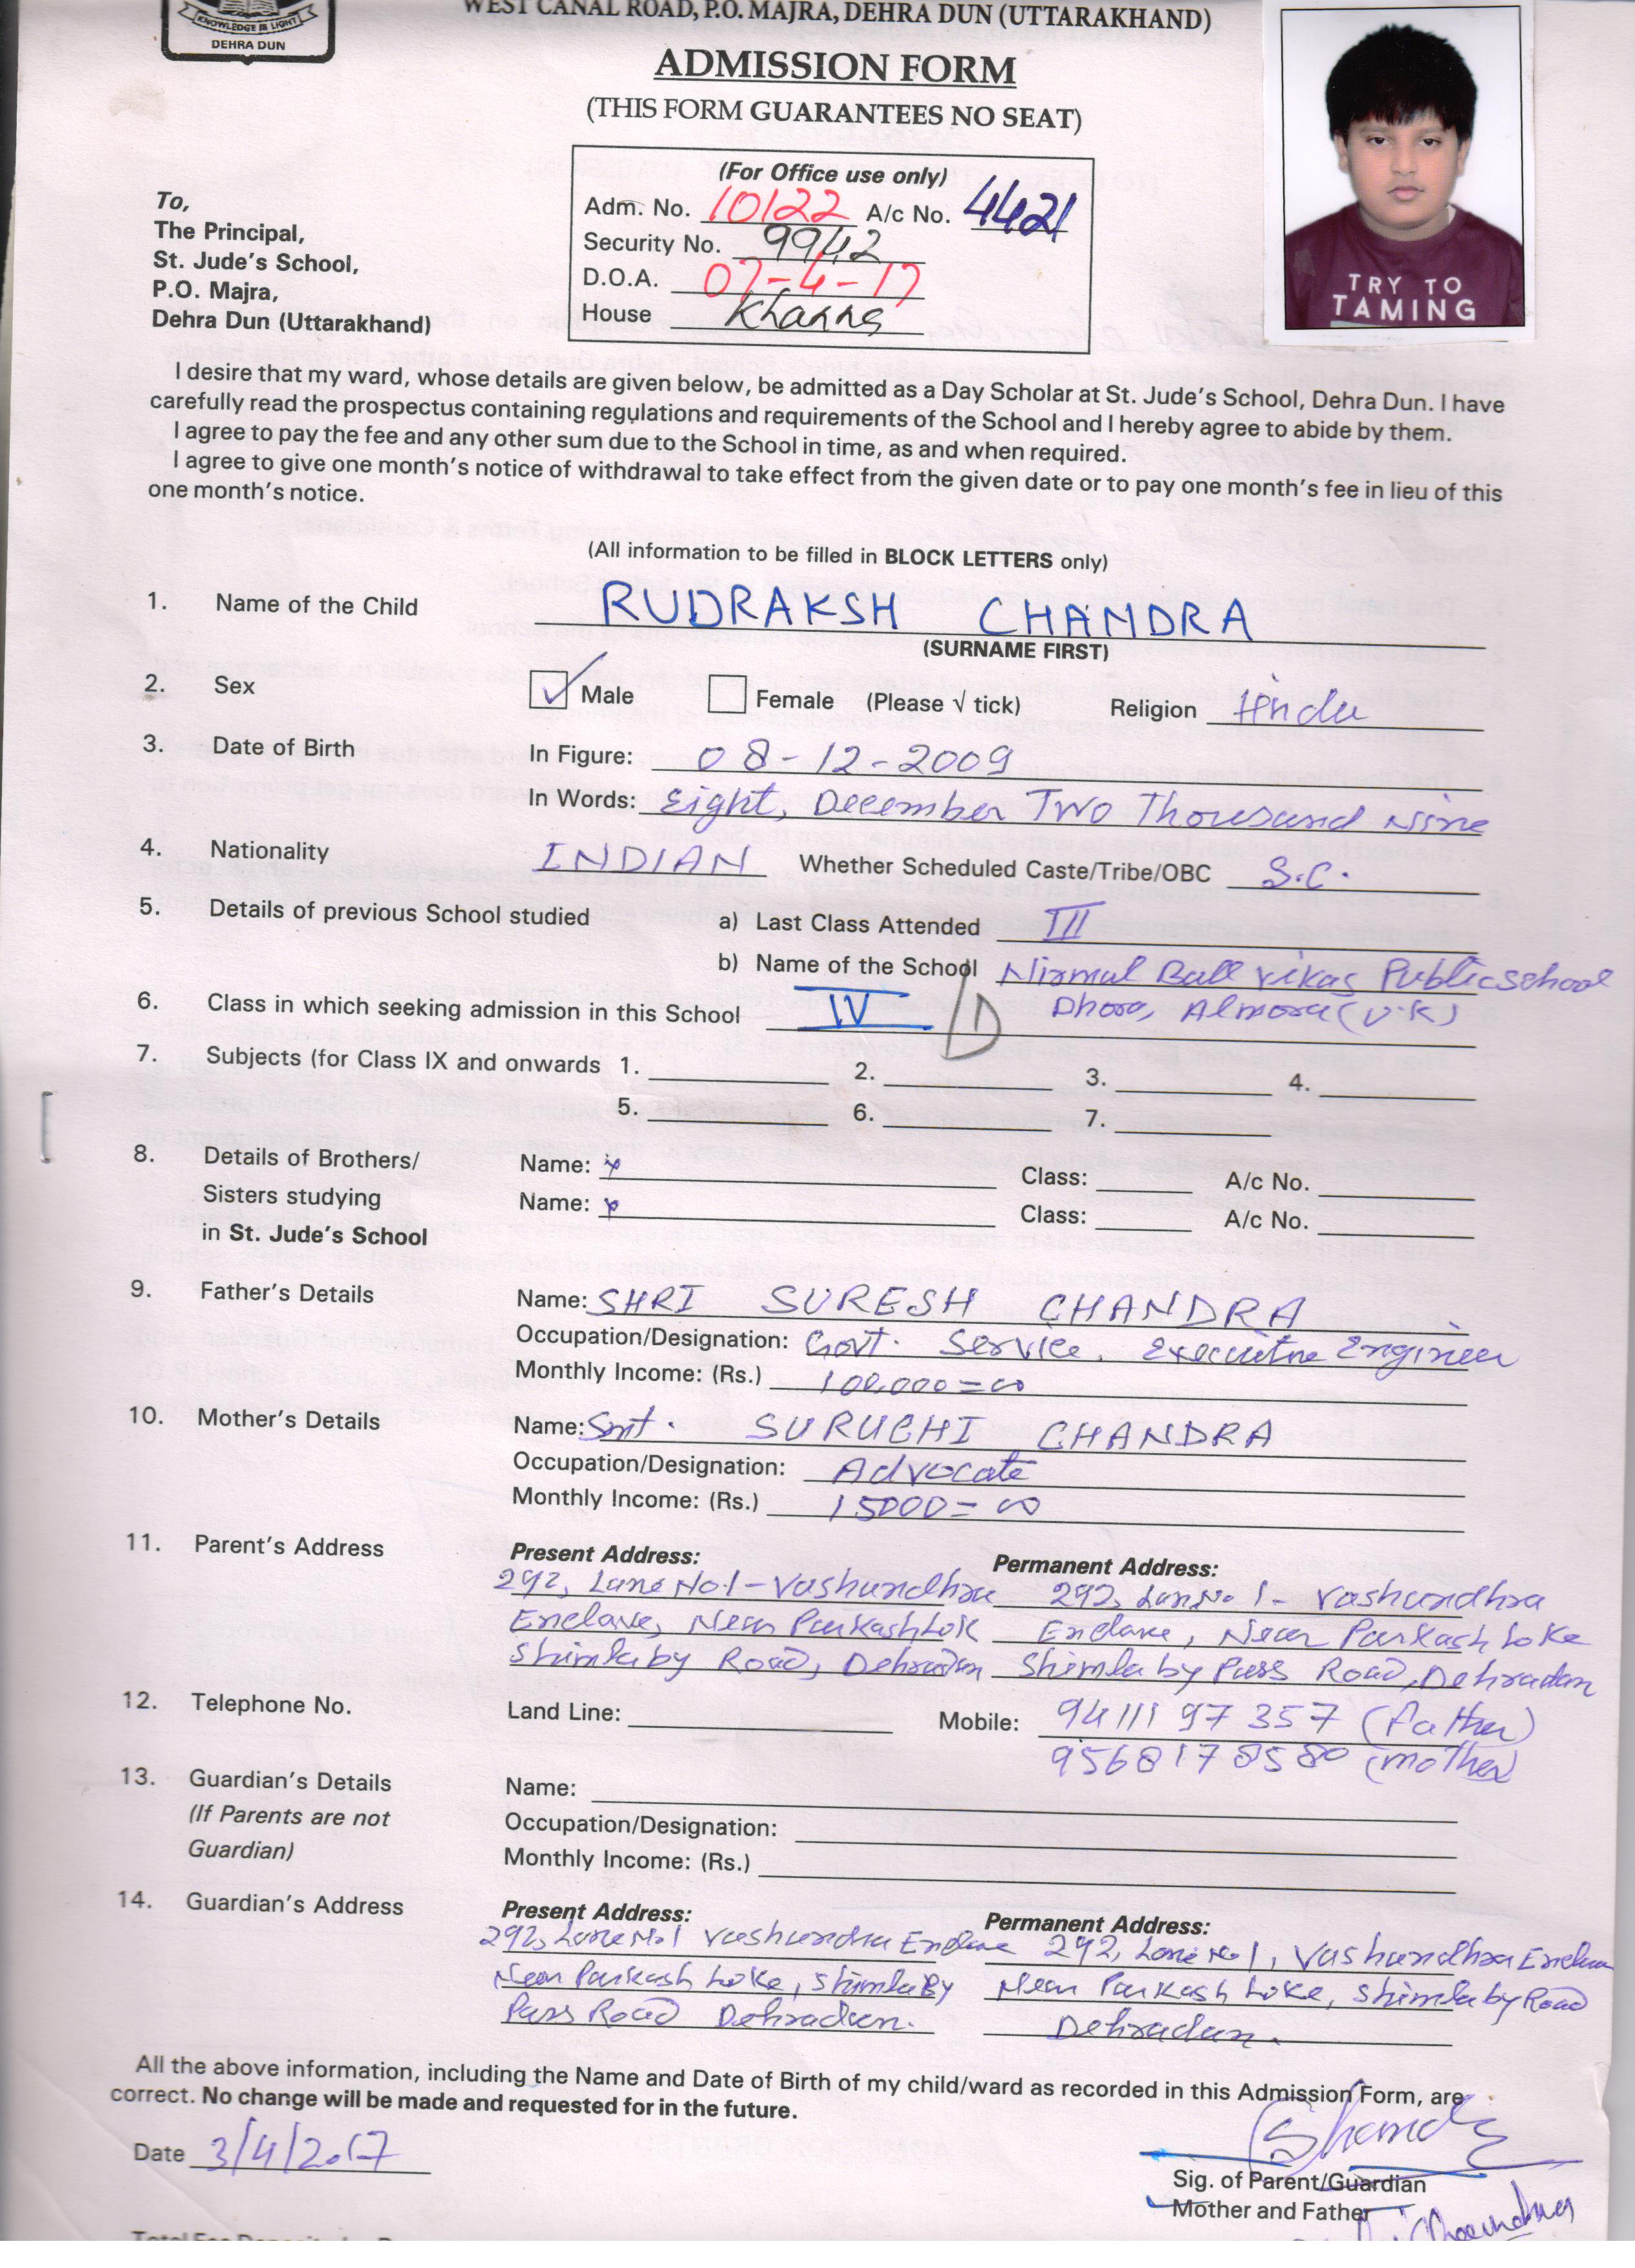 KNOWLEDGE IS LIGHT
DEHRA DUN
WEST CANAL ROAD, P.O. MAJRA, DEHRA DUN (UTTARAKHAND)
ADMISSION FORM
(THIS FORM GUARANTEES NO SEAT)
(For Office use only)
Adm. No. 10122 A/c No. 4421
Security No. 9942
D.O.A. 07-4-17
House Khanna
To,
The Principal,
St. Jude's School,
P.O. Majra,
Dehra Dun (Uttarakhand)
TRY TO
TAMING
I desire that my ward, whose details are given below, be admitted as a Day Scholar at St. Jude's School, Dehra Dun. I have
carefully read the prospectus containing regulations and requirements of the School and I hereby agree to abide by them.
I agree to pay the fee and any other sum due to the School in time, as and when required.
I agree to give one month's notice of withdrawal to take effect from the given date or to pay one month's fee in lieu of this
one month's notice.
(All information to be filled in BLOCK LETTERS only)
1. Name of the Child RUDRAKSH CHANDRA
(SURNAME FIRST)
2. Sex Male Female (Please √ tick) Religion Hindu
3. Date of Birth In Figure: 08-12-2009
In Words: Eight, December Two Thousand Nine
4. Nationality INDIAN Whether Scheduled Caste/Tribe/OBC S.C.
5. Details of previous School studied a) Last Class Attended III
b) Name of the School Nirmal Ball Vikas Public School
Dhora, Almora (U.K)
6. Class in which seeking admission in this School IV / D
7. Subjects (for Class IX and onwards 1. 2. 3. 4.
5. 6. 7.
8. Details of Brothers/ Name: x Class: A/c No.
Sisters studying Name: x Class: A/c No.
in St. Jude's School
9. Father's Details Name: SHRI SURESH CHANDRA
Occupation/Designation: Govt. Service, Executive Engineer
Monthly Income: (Rs.) 100,000=00
10. Mother's Details Name: Smt. SURUCHI CHANDRA
Occupation/Designation: Advocate
Monthly Income: (Rs.) 15000=00
11. Parent's Address Present Address: Permanent Address:
292, Lane No.1 - Vashundhra 292, Lan No 1 - Vashundhra
Enclave, Near Parkash Lok Enclave, Near Parkash Loke
Shimla by Road, Dehradun Shimla by Pass Road, Dehradun
12. Telephone No. Land Line: Mobile: 9411197357 (Father)
9568178580 (mother)
13. Guardian's Details Name:
(If Parents are not Occupation/Designation:
Guardian) Monthly Income: (Rs.)
14. Guardian's Address Present Address: Permanent Address:
292, Lane No.1 Vashundhra Enclave 292, Lane No 1, Vashundhra Enclave
Near Parkash Loke, Shimla By Near Parkash Loke, Shimla by Road
Pass Road Dehradun. Dehradun.
All the above information, including the Name and Date of Birth of my child/ward as recorded in this Admission Form, are
correct. No change will be made and requested for in the future.
Date 3/4/2017
Sig. of Parent/Guardian
Mother and Father